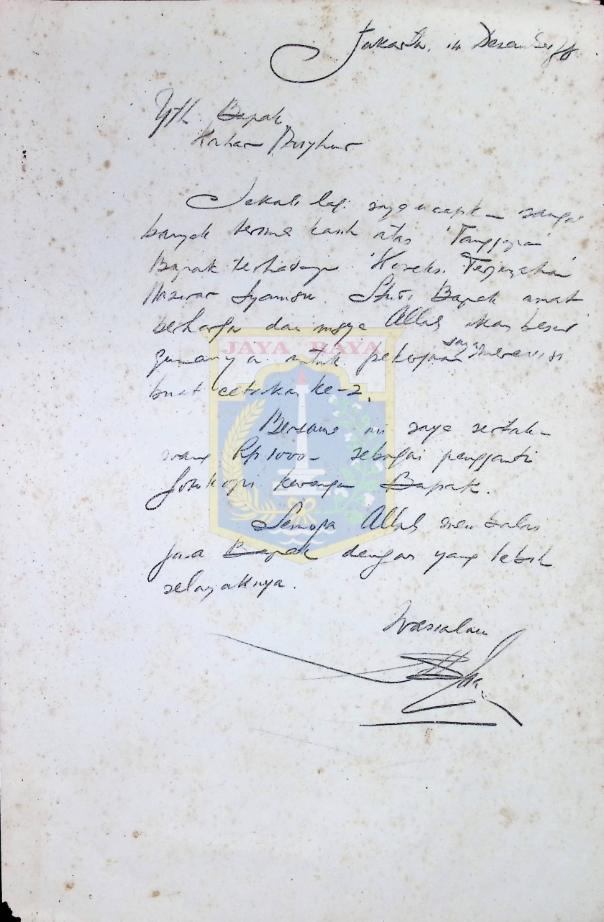 Jakarta, 14 Desember 78
Yth. Bapak
Kahar Muzhur
Sekali lagi saya ucapkan sangat
banyak terima kasih atas 'Tanggapan'
Bapak terhadap 'Koreksi Terjemahan'
Nazwar Syamsu. Studi Bapak amat
berharga dan moga Allah akan besar
JAYA RAYA
gunanya untuk pekerjaan saya merevisi
buat cetakan ke-2.
Bersama ini saya sertakan
uang Rp 1000- sebagai pengganti
fotokopi karangan Bapak.
Semoga Allah membalas
jasa Bapak dengan yang lebih
selayaknya.
Wassalam